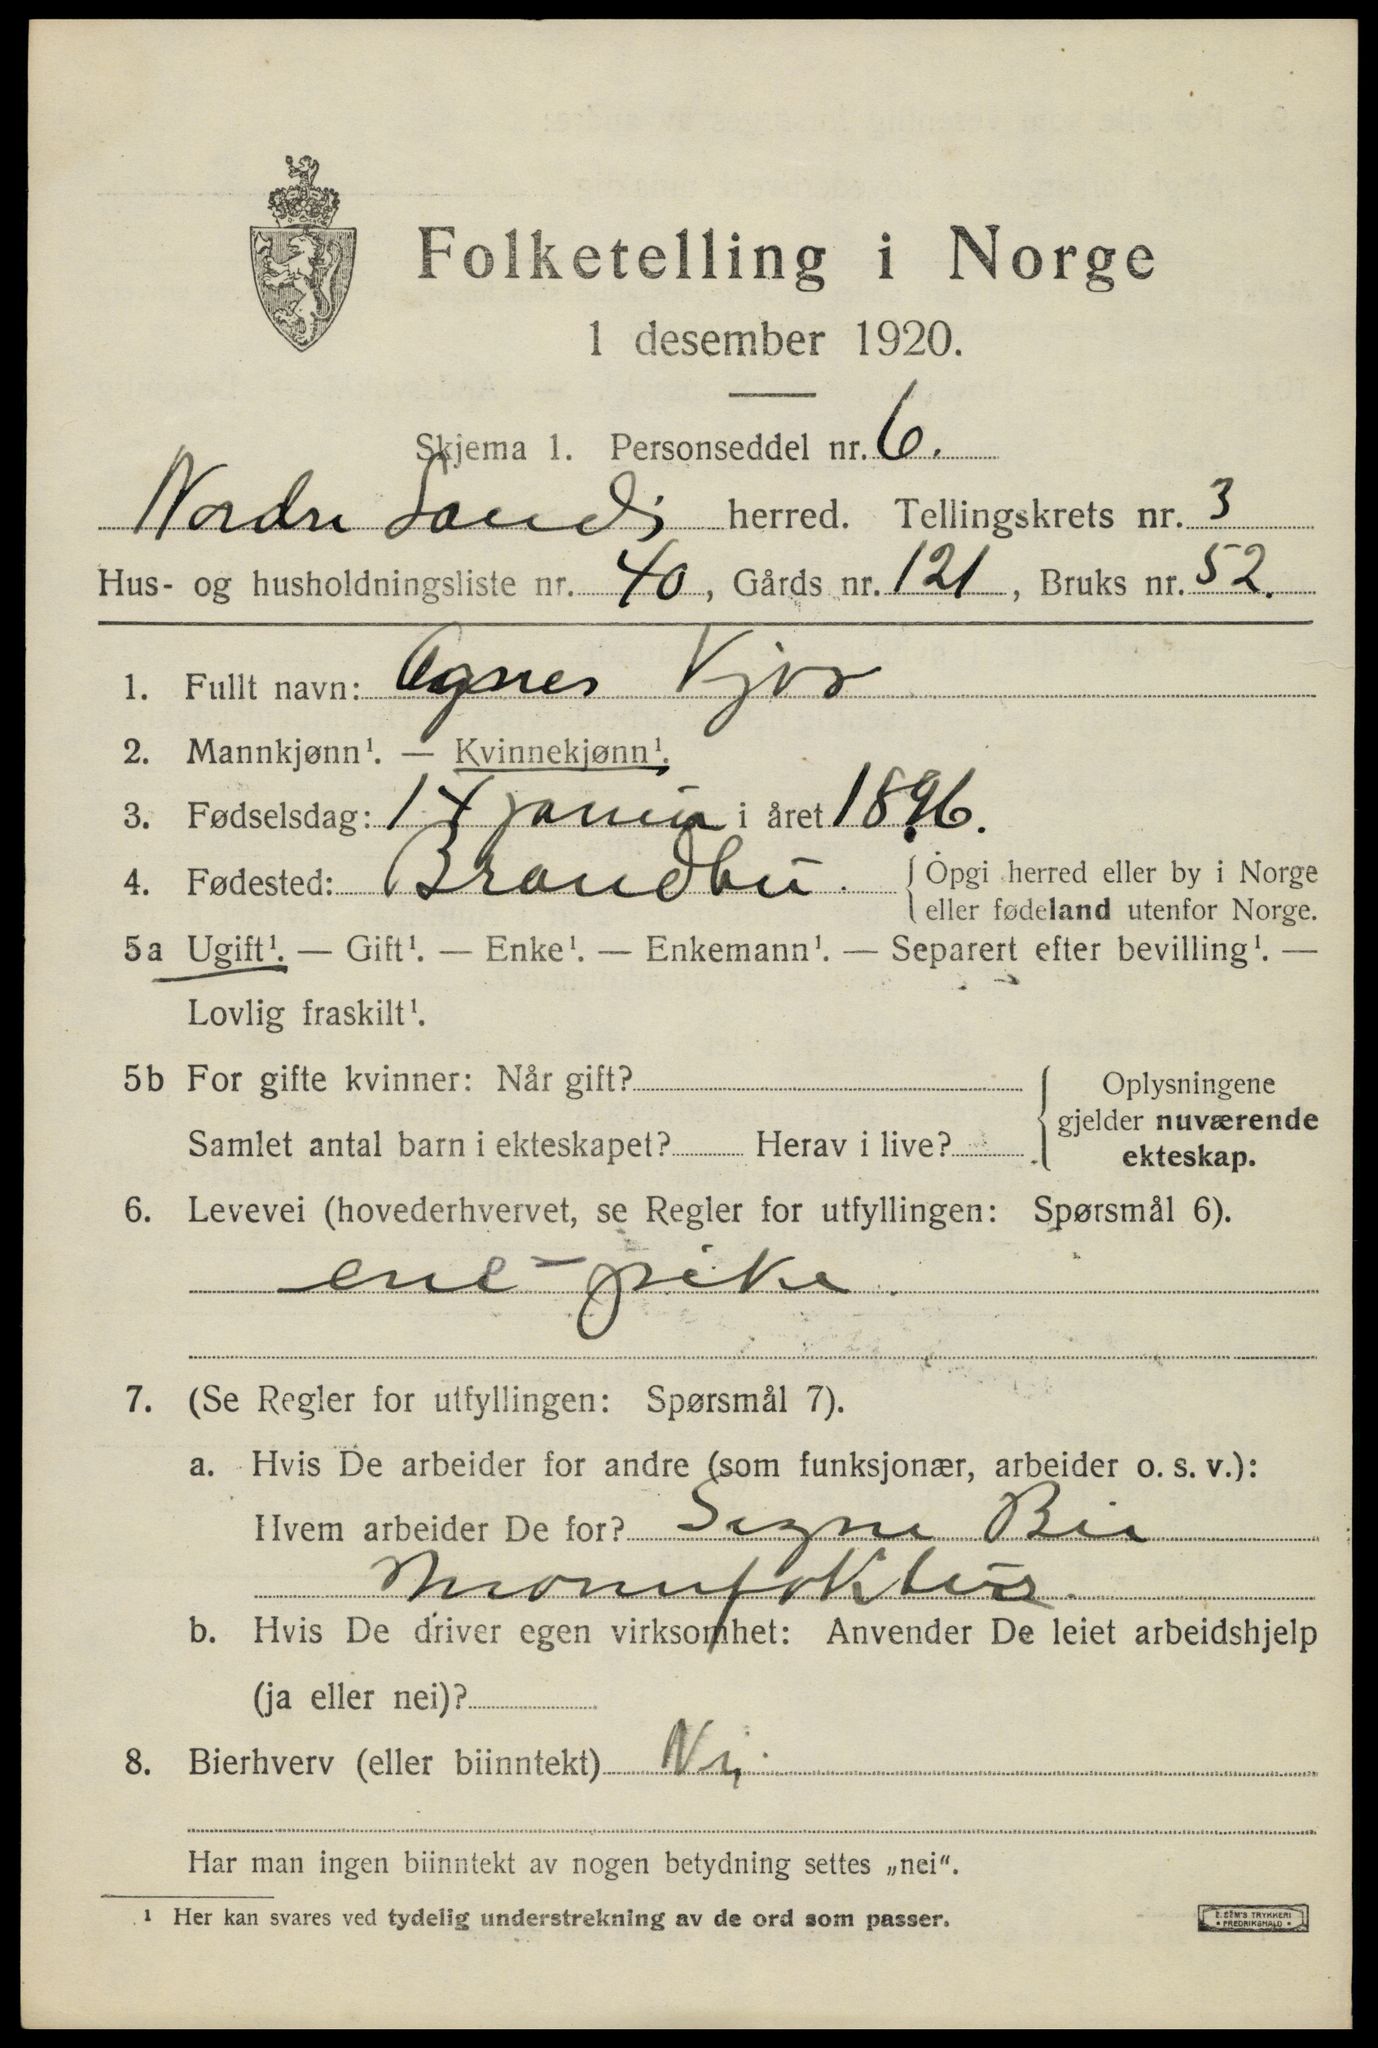 Folketelling i Norge
1 desember 1920.
Skjema 1. Personseddel nr. 6.
Nordre Land herred. Tellingskrets nr. 3
Hus- og husholdningsliste nr. 40, Gårds nr. 121, Bruks nr. 52.
1. Fullt navn: Agnes
2. Mannkjønn¹. — Kvinnekjønn¹.
3. Fødselsdag: 14 i året 1896.
4. Fødested: Brandbu. { Opgi herred eller by i Norge
eller fødeland utenfor Norge.
5a Ugift¹. — Gift¹. — Enke¹. — Enkemann¹. — Separert efter bevilling¹. —
Lovlig fraskilt¹.
5b For gifte kvinner: Når gift? { Oplysningene
gjelder nuværende
Samlet antal barn i ekteskapet? Herav i live? ekteskap.
6. Levevei (hovederhvervet, se Regler for utfyllingen: Spørsmål 6).
ene-pike.
7. (Se Regler for utfyllingen: Spørsmål 7).
a. Hvis De arbeider for andre (som funksjonær, arbeider o. s. v.):
Hvem arbeider De for? Signe
Manufaktur
b. Hvis De driver egen virksomhet: Anvender De leiet arbeidshjelp
(ja eller nei)?
8. Bierhverv (eller biinntekt) Nei
Har man ingen biinntekt av nogen betydning settes „nei“.
¹ Her kan svares ved tydelig understrekning av de ord som passer.
E. SEM'S TRYKKERI
• FREDRIKSHALD •